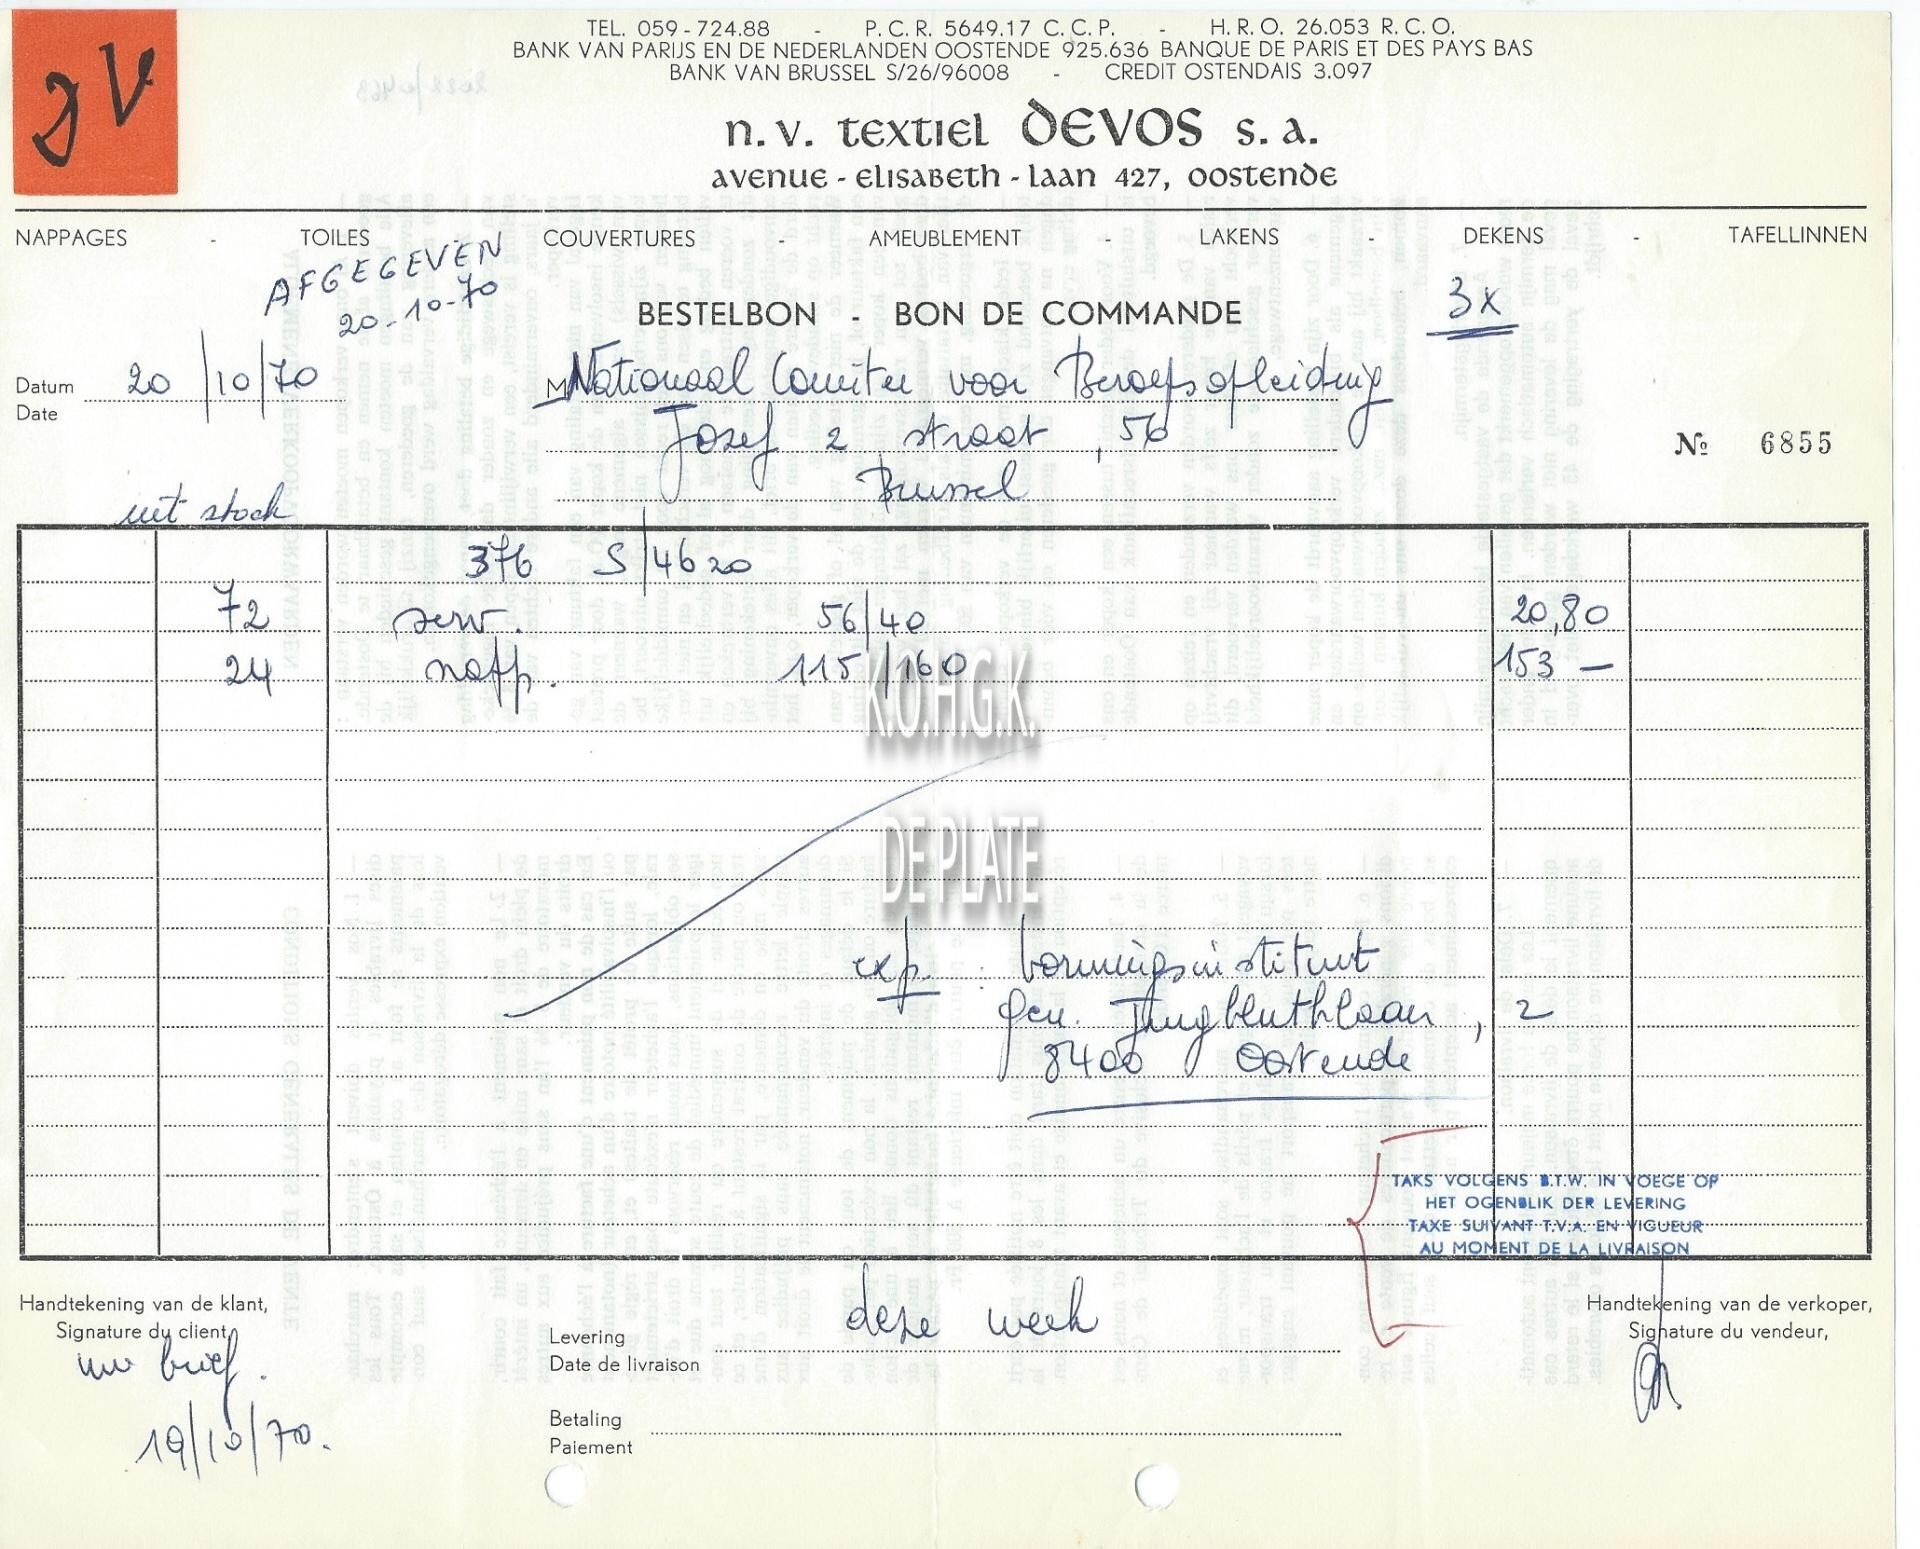 JV
TEL. 059-724.88 - P.C.R. 5649.17 C.C.P. - H.R.O. 26.053 R.C.O.
BANK VAN PARIJS EN DE NEDERLANDEN OOSTENDE 925.636 BANQUE DE PARIS ET DES PAYS BAS
BANK VAN BRUSSEL S/26/96008 - CREDIT OSTENDAIS 3.097
n.v. textiel DEVOS s.a.
avenue - elisabeth - laan 427, oostende
NAPPAGES - TOILES - COUVERTURES - AMEUBLEMENT - LAKENS - DEKENS - TAFELLINNEN
AFGEGEVEN
20-10-70
BESTELBON - BON DE COMMANDE
3x
Datum
Date
20/10/70
M Nationaal Comitee voor Beroepsopleiding
Jozef 2 straat, 56
Brussel
No 6855
uit stock
376 S/4620
72 serv. 56/40 20,80
24 napp. 115/160 153 —
K.O.H.G.K.
DE PLATE
exp. : Vormingsinstituut
Gen. Jungbluthlaan, 2
8400 Oostende
TAKS VOLGENS B.T.W. IN VOEGE OP
HET OGENBLIK DER LEVERING
TAXE SUIVANT T.V.A. EN VIGUEUR
AU MOMENT DE LA LIVRAISON
Handtekening van de klant,
Signature du client,
uw brief.
19/10/70.
Levering
Date de livraison
deze week
Betaling
Paiement
Handtekening van de verkoper,
Signature du vendeur,